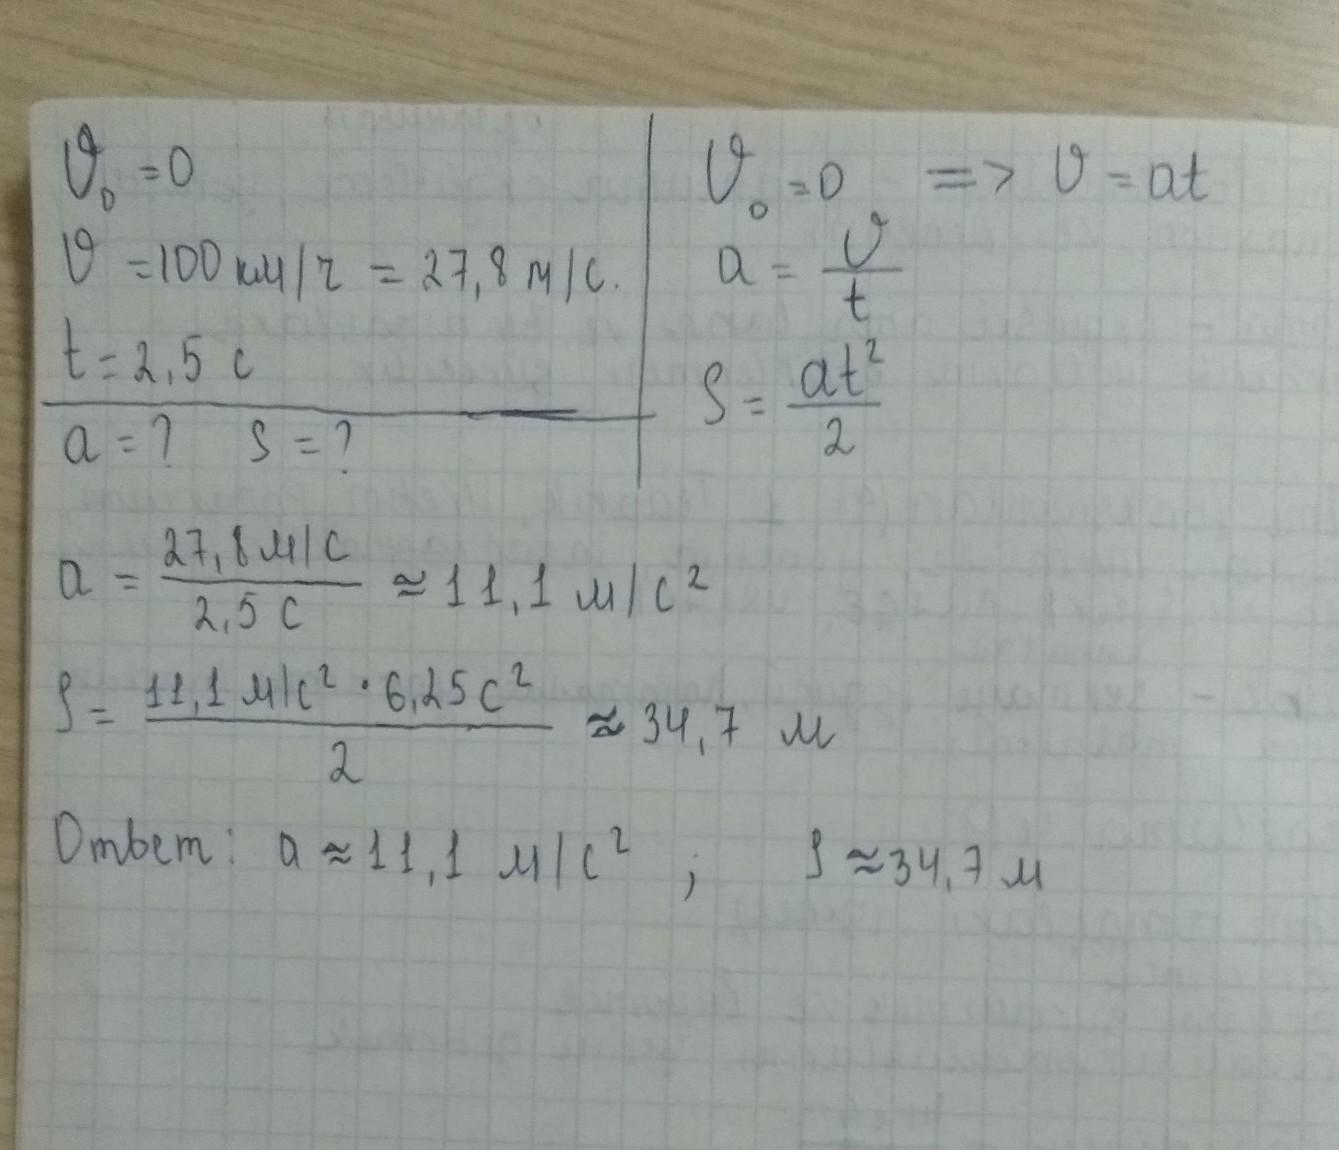 υ₀ = 0
υ = 100 км/ч = 27,8 м/с.
t = 2,5 с
a = ? S = ?
υ₀ = 0 => υ = at
a = υ/t
S = at²/2
a = 27,8 м/с / 2,5 с ≈ 11,1 м/с²
S = 11,1 м/с² · 6,25 с² / 2 ≈ 34,7 м
Ответ: a ≈ 11,1 м/с² ; S ≈ 34,7 м